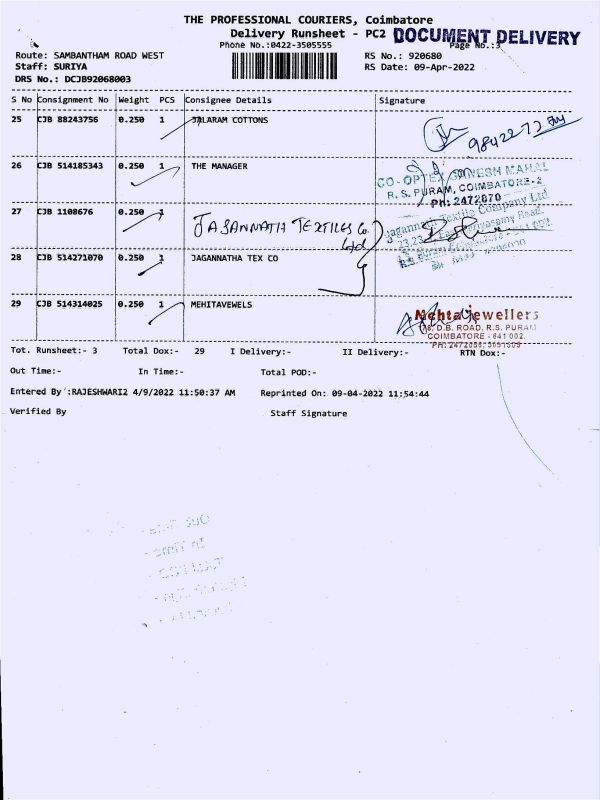 THE PROFESSIONAL COURIERS, Coimbatore
Delivery Runsheet - PC2 DOCUMENT DELIVERY
Phone No.:0422-3505555 Page No.:3
Route: SAMBANTHAM ROAD WEST RS No.: 920680
Staff: SURIYA RS Date: 09-Apr-2022
DRS No.: DCJB92068003
S No Consignment No Weight PCS Consignee Details Signature
25 CJB 88243756 0.250 1 JALARAM COTTONS
26 CJB 514185343 0.250 1 THE MANAGER
CO-OPTEX GANESH MAHAL
R. S. PURAM, COIMBATORE-2
Ph: 2472070
27 CJB 1108676 0.250 1 JAGANNATH TEXTILES Co Ltd
Jagannath Textile Company Ltd
28 CJB 514271070 0.250 1 JAGANNATHA TEX CO
29 CJB 514314025 0.250 1 MEHITAVEWELS
Mehta Jewellers
D.B. ROAD, R.S. PURAM
COIMBATORE - 641 002.
Tot. Runsheet:- 3 Total Dox:- 29 I Delivery:- II Delivery:- RTN Dox:-
Out Time:- In Time:- Total POD:-
Entered By :RAJESHWARI2 4/9/2022 11:50:37 AM Reprinted On: 09-04-2022 11:54:44
Verified By Staff Signature